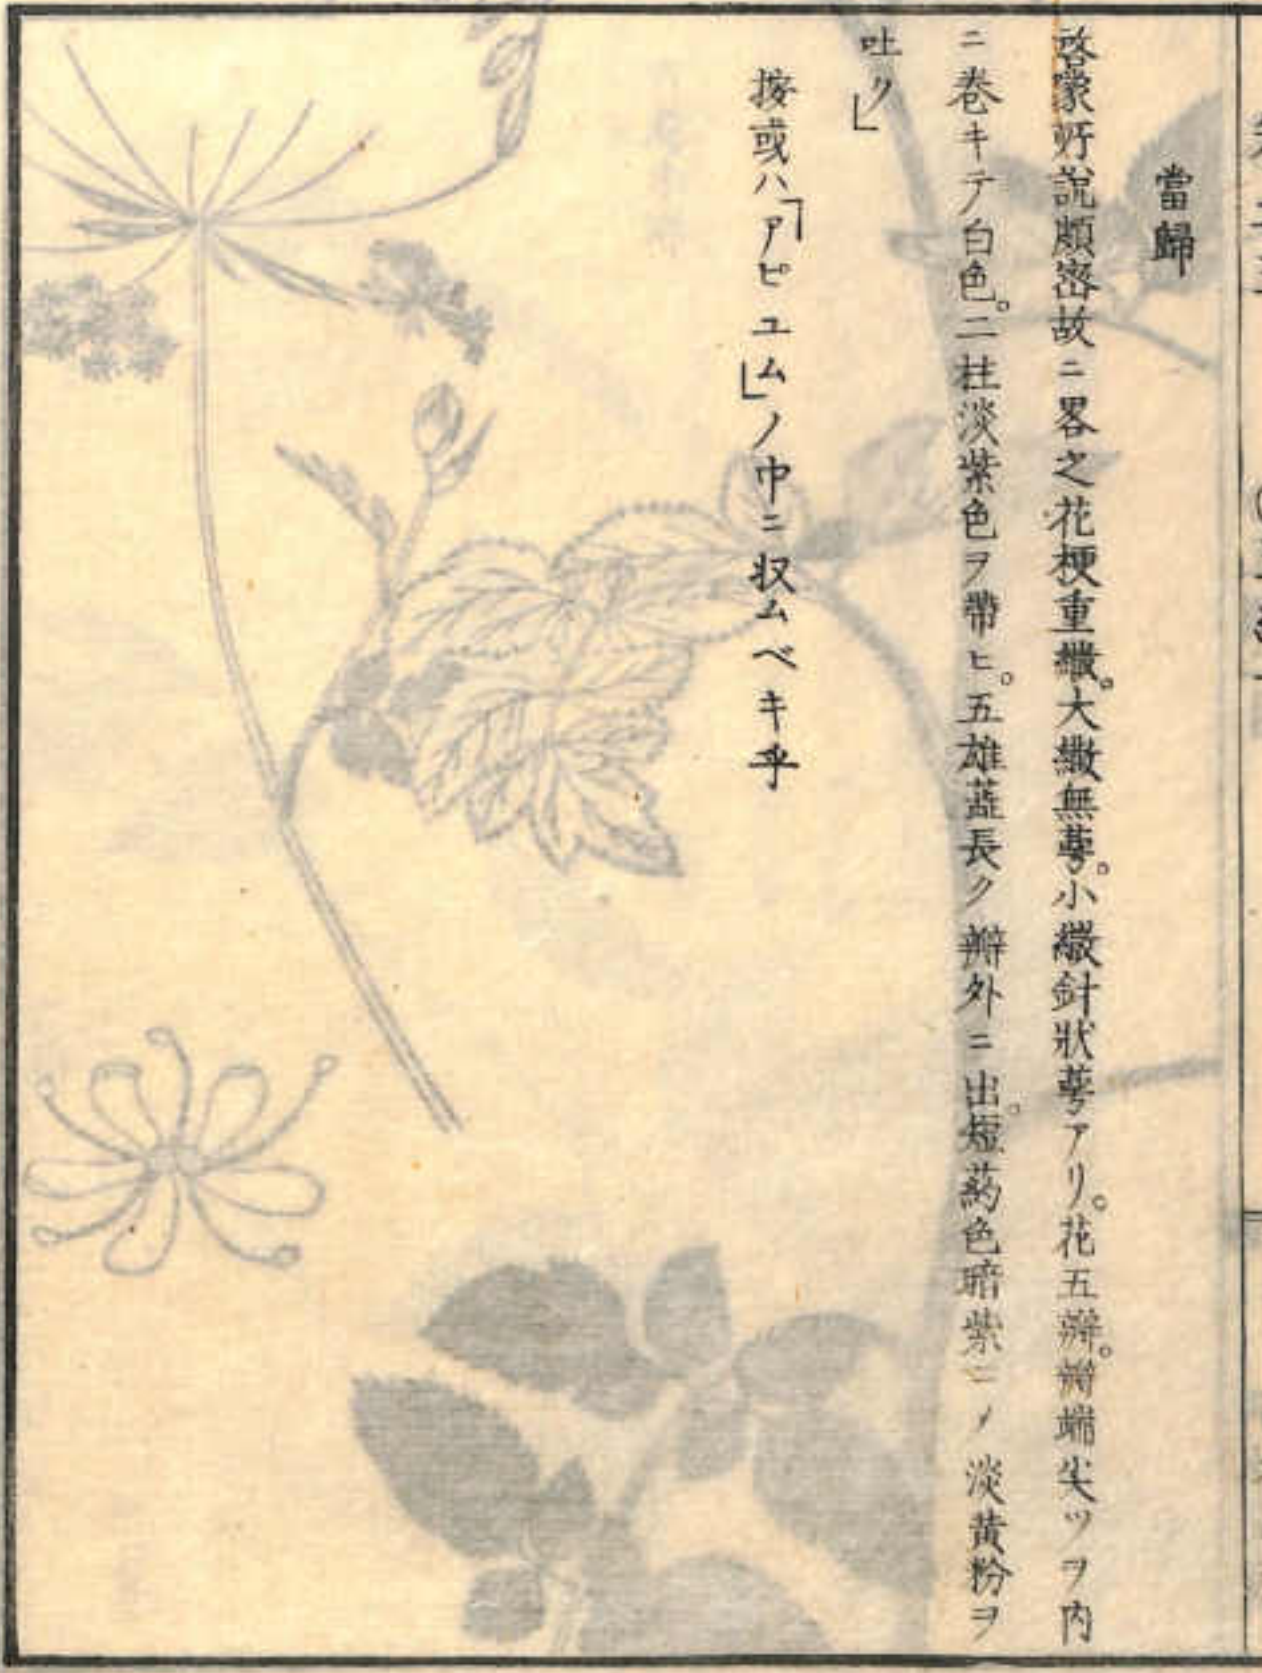 當歸
啓蒙所說頗密故ニ畧之花梗重繖。大繖無萼。小繖針狀萼アリ。花五瓣。瓣端尖ツヲ内
ニ卷キテ白色。二柱淡紫色ヲ帶ヒ。五雄蕋長ク瓣外ニ出。短葯色暗紫ニ〆淡黄粉ヲ
吐ク」
按或ハ「アピユム」ノ中ニ収ムベキ乎